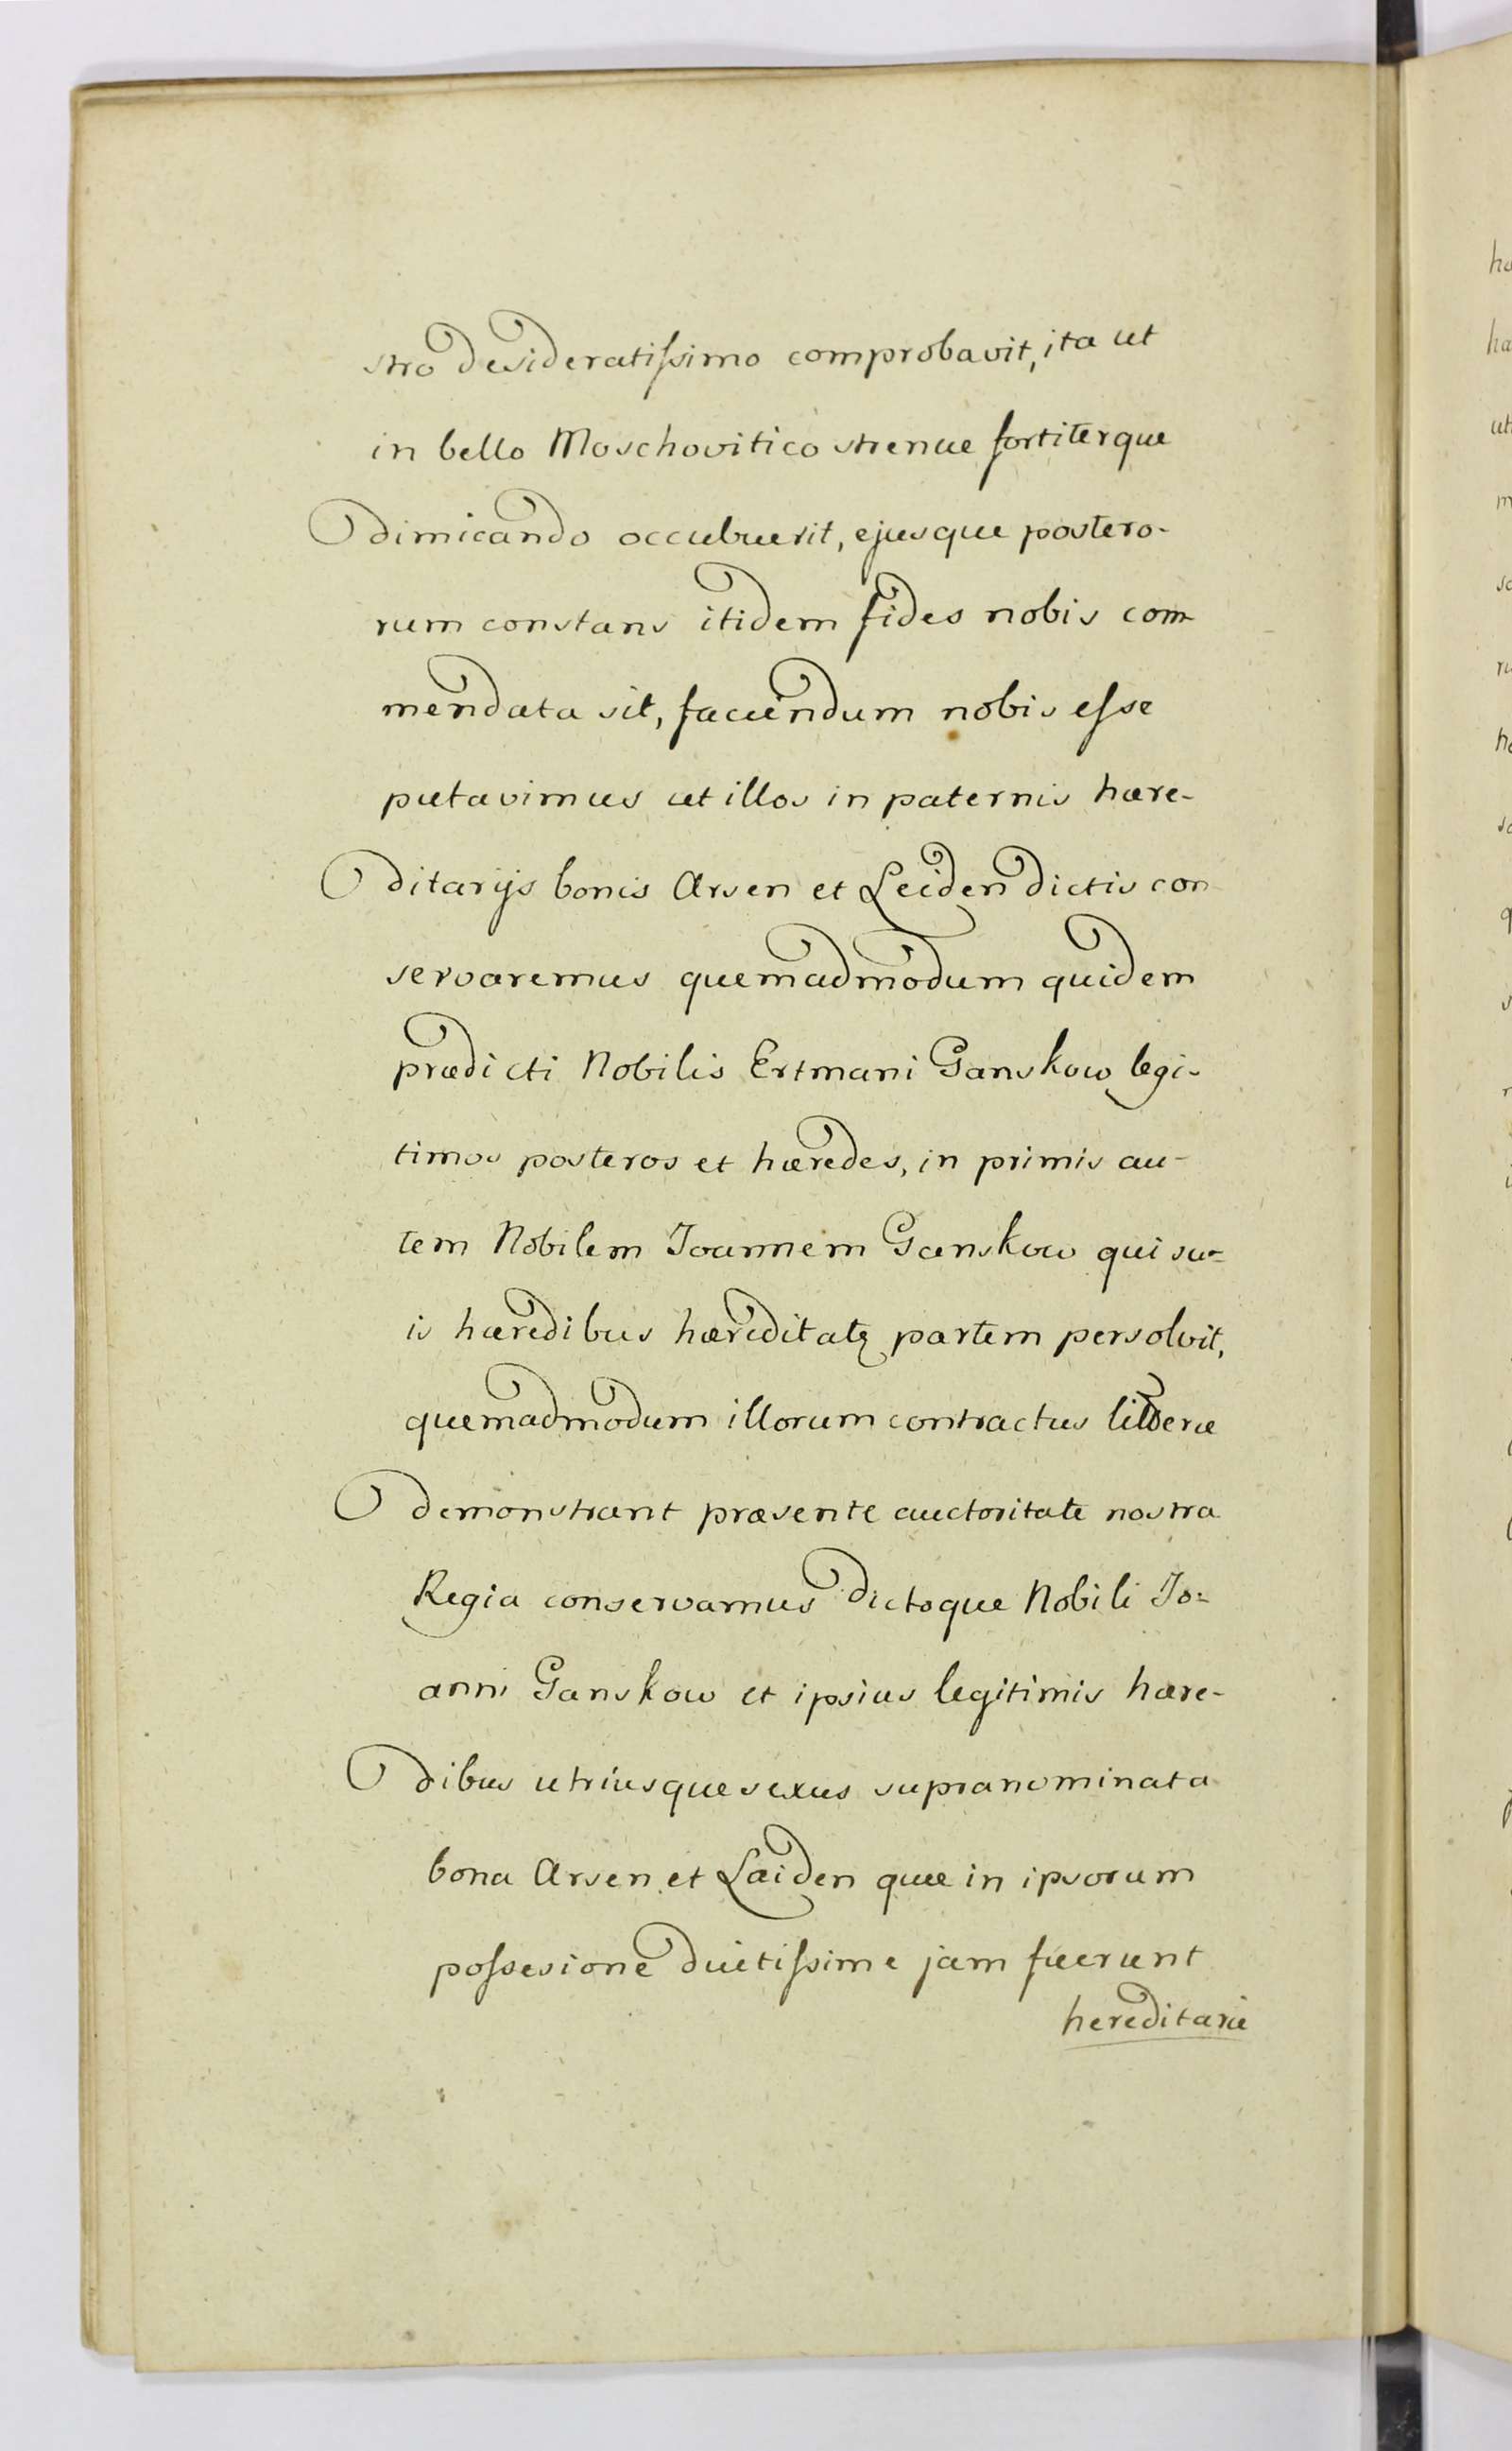 stro desideratissimo comprobavit, ita ut
in bello Moschovitico strenue fortiterque
dimicando occubuerit, ejusque postero-
rum constans itidem fides nobis com-
mendata sit, faciendum nobis esse
putavimus ut illos in paternis hære-
ditarijs bonis Arsen et Leiden dictis con-
servaremus quemadmodum quidem
prædicti Nobilis Ertmani Ganskow legi-
timos posteros et hæredes, in primis au-
tem Nobilem Joannem Ganskow qui su=
is hæredibus hæreditatę partem persolvit,
quemadmodum illorum contractus litteræ
demonstrant præsente auctoritate nostra
Regia conservamus dictoque Nobili Jo=
anni Ganskow et ipsius legitimis hære-
dibus utriusque sexus supranominata
bona Arsen et Laiden quæ in ipsorum
possesione diutissime jam fuerunt
hereditarie
ha
ut
m